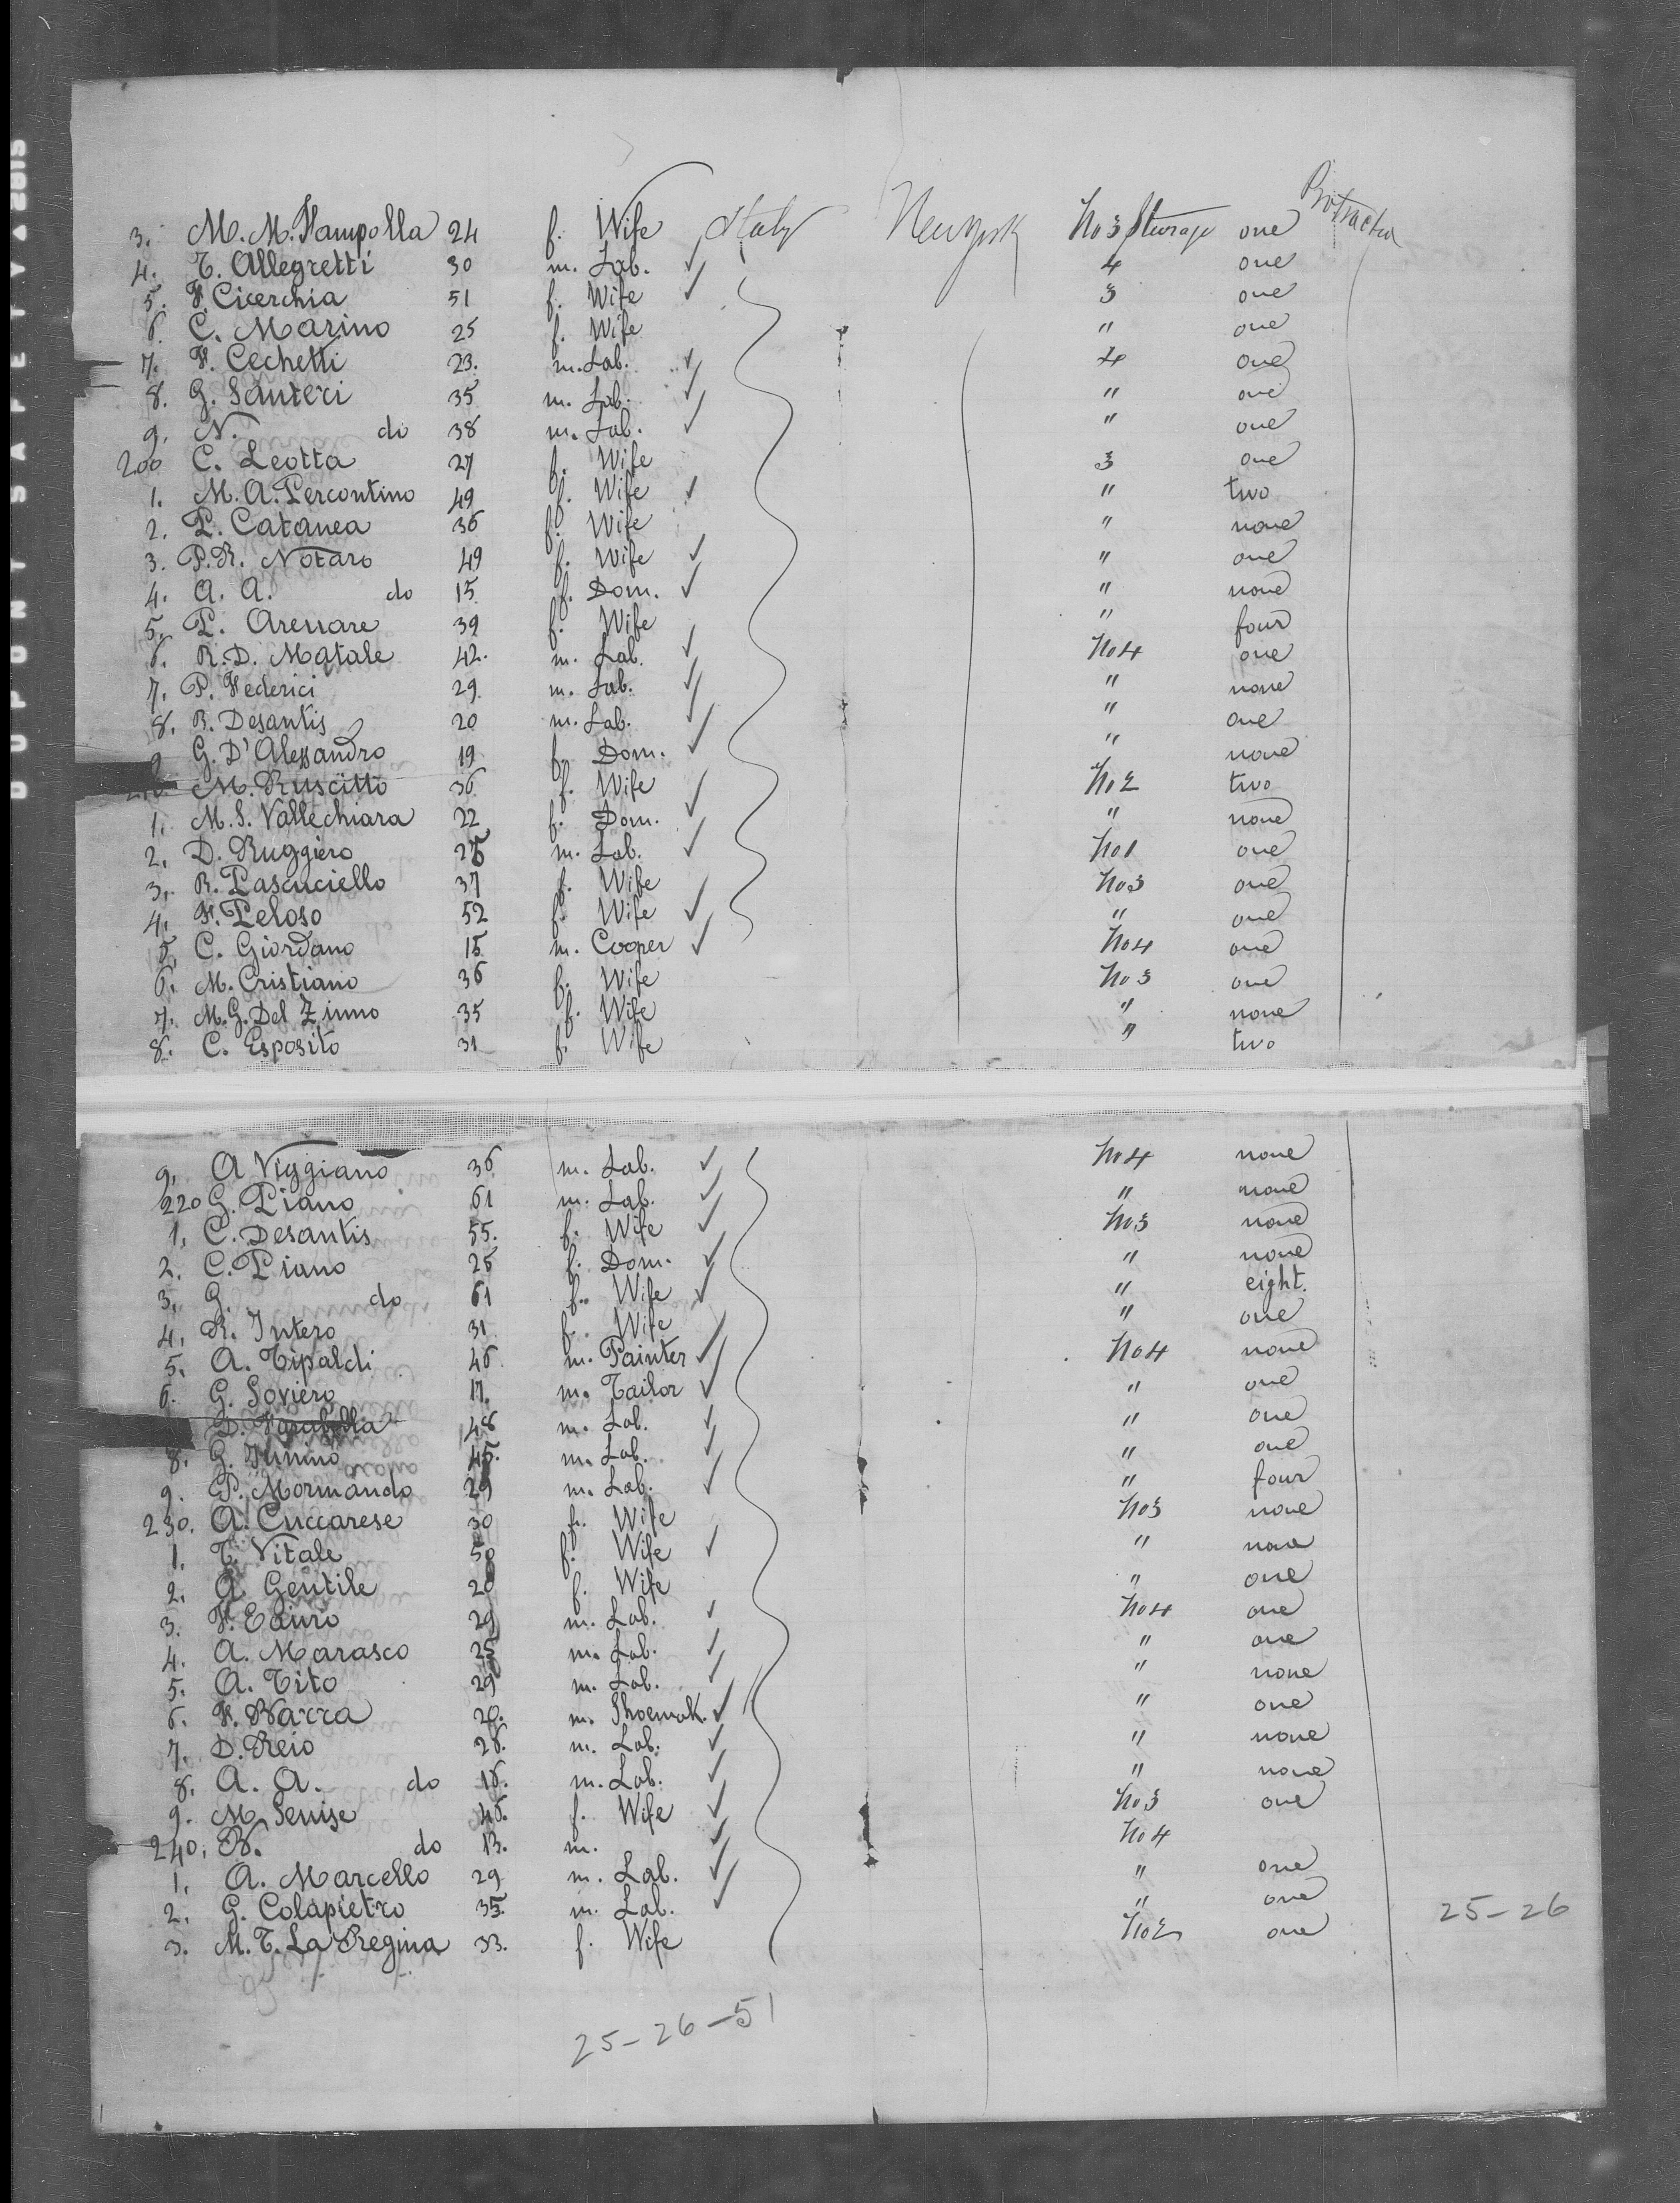 3. M. M. Fampolla 24 f. Wife Italy New York No 3 Steerage one Protracted
4. T. Allegretti 30 m. Lab. ✓ 4 one
5. F. Cicerchia 51 f. Wife ✓ 3 one
6. C. Marino 25 f. Wife " one
7. F. Cechetti 23. m. Lab. ✓ 4 one
8. G. Santeri 35 m. Lab. ✓ " one
9. N. do 38 m. Lab. ✓ " one
200 C. Leotta 27 f. Wife 3 one
1. M. A. Percontino 49 f. Wife ✓ " two
2. P. Catanea 36 f. Wife " none
3. P. R. Notaro 49 f. Wife ✓ " one
4. A. A. do 15 f. Dom. ✓ " none
5. P. Arenare 39 f. Wife " four
6. R. D. Matale 42. m. Lab. ✓ No 4 one
7. P. Federici 29. m. Lab. ✓ " none
8. R. Desantis 20 m. Lab. ✓ " one
9 G. D'Alessandro 19 f. Dom. ✓ " none
M. Ruscitto 36 f. Wife ✓ No 2 two
1. M. S. Vallechiara 22 f. Dom. ✓ " none
2. D. Ruggiero m. Lab. ✓ No 1 one
3. R. Pascuciello 37 f. Wife No 3 one
4. F. Peloso 52 f. Wife ✓ " one
5. C. Giordano 15 m. Cooper ✓ No 4 one
6. M. Cristiano 36 f. Wife No 3 one
7. M. G. Del Zinno 35 f. Wife " none
8. C. Esposito 31 f. Wife " two
9. A Viggiano 36 m. Lab. ✓ No 4 none
220 G. Piano 61 m. Lab. ✓ " none
1. C. Desantis 55. f. Wife ✓ No 3 none
2. C. Piano 25 f. Dom. ✓ " none
3. G. do 61 f. Wife ✓ " eight.
4. R. Intero 31 f. Wife " one
5. A. Tipaldi 46 m. Painter ✓ No 4 none
6. G. Soviero 17. m. Tailor ✓ " one
D. 48 m. Lab. ✓ " one
8. G. 45. m. Lab. ✓ " one
9. P. Mormando 29 m. Lab. ✓ " four
230. A. Cuccarese 30 f. Wife No 3 none
1. T. Vitale 50 f. Wife ✓ " none
2. A. Gentile 20 f. Wife " one
3. F. Eauro 29 m. Lab. ✓ No 4 one
4. A. Marasco 25 m. Lab. ✓ " one
5. A. Tito 29 m. Lab. ✓ " none
6. F. Barra 20. m. Shoemak. ✓ " one
7. D. Reio 28. m. Lab. ✓ " none
8. A. A. do 16. m. Lab. ✓ " none
9. M. Senise 45. f. Wife ✓ No 3 one
240. B. do 13. m. ✓ No 4
1. A. Marcello 29 m. Lab. ✓ " one
2. G. Colapietro 35. m. Lab. ✓ " one 25-26
3. M. T. La Regina 33. f. Wife No 2 one
25-26-51